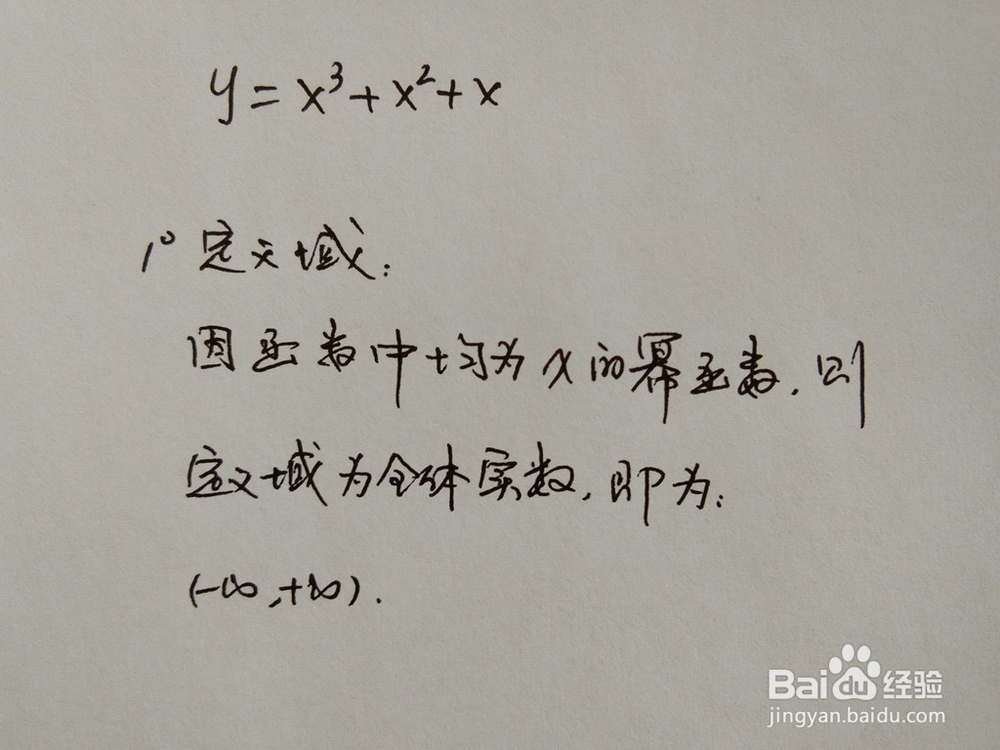 y = x³ + x² + x
1° 定义域：
因函数中均为x的幂函数，则
定义域为全体实数，即为：
(-∞,+∞).
Baidu经验
jingyan.baidu.com